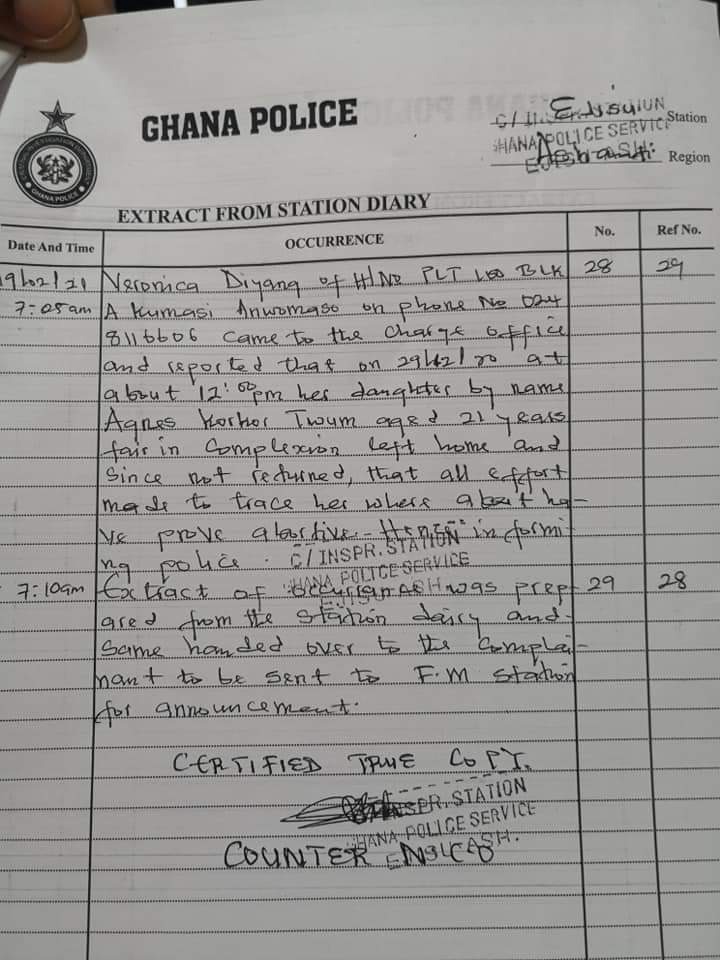 GHANA POLICE
C/INSPR. STATION Ejisu Station
GHANA POLICE SERVICE Ashanti Region
GHANA POLICE
EXTRACT FROM STATION DIARY
Date And Time OCCURRENCE No. Ref No.
19/02/21 Veronica Diyang of H/No PLT BLK 28 29
7:05am A Kumasi Anwomaso on phone No 024
8116606 came to the charge office
and reported that on 29/12/20 at
about 12:00pm her daughter by name
Agnes Korkor Twum aged 21 years
fair in complexion left home and
since not returned, that all effort
made to trace her where about ha-
ve prove abortive. Hence informi
ng police.
C/INSPR. STATION
GHANA POLICE SERVICE
7:10am Extract of was prep 29 28
ared from the station dairy and
same handed over to the complai-
nant to be sent to F.M station
for announcement.
CERTIFIED TRUE COPY.
INSPR. STATION
GHANA POLICE SERVICE
COUNTER NCO